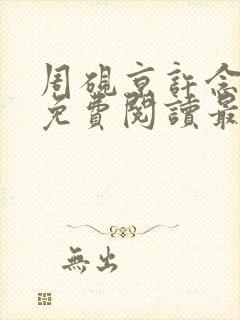 周硯京許念
免費閱讀最
無出